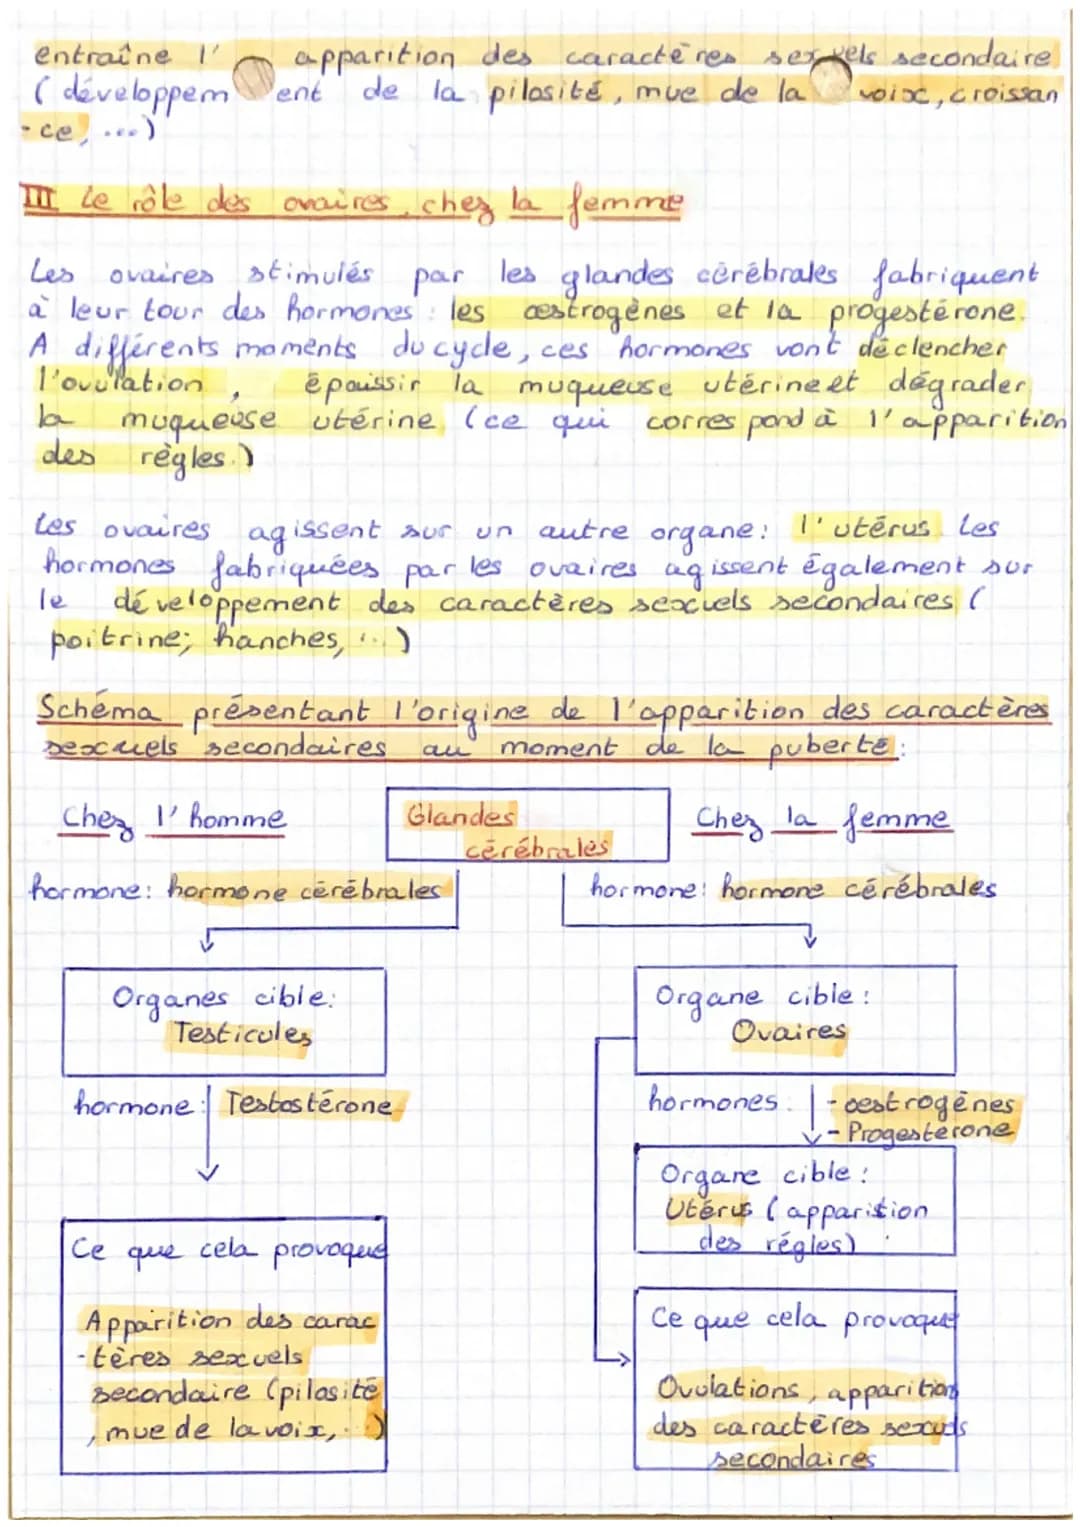 entraîne l' apparition des caractères sexuels secondaire
( développem ent de la pilosité, mue de la voix, croissan
-ce, ...)
III Le rôle des ovaires chez la femme
Les ovaires stimulés par les glandes cérébrales fabriquent
à leur tour des hormones : les œstrogènes et la progestérone.
A différents moments du cycle, ces hormones vont déclencher
l'ovulation, épaissir la muqueuse utérine et dégrader
la muqueuse utérine (ce qui correspond à l'apparition
des règles.)
Les ovaires agissent sur un autre organe: l'utérus. Les
hormones fabriquées par les ovaires agissent également sur
le développement des caractères sexuels secondaires (
poitrine; hanches, ...)
Schéma présentant l'origine de l'apparition des caractères
sexuels secondaires au moment de la puberté :
Chez l'homme
Glandes
cérébrales
Chez la femme
hormone: hormone cérébrales
hormone: hormone cérébrales
Organes cible:
Testicules
Organe cible:
Ovaires
hormone: Testostérone
hormones: - oestrogènes
- Progesterone
Organe cible:
Utérus (apparition
des régles)
Ce que cela provoque
Apparition des carac
-tères sexuels
secondaire (pilosité
, mue de la voix, ...)
Ce que cela provoque
Ovulations, apparition
des caractères sexuels
secondaires